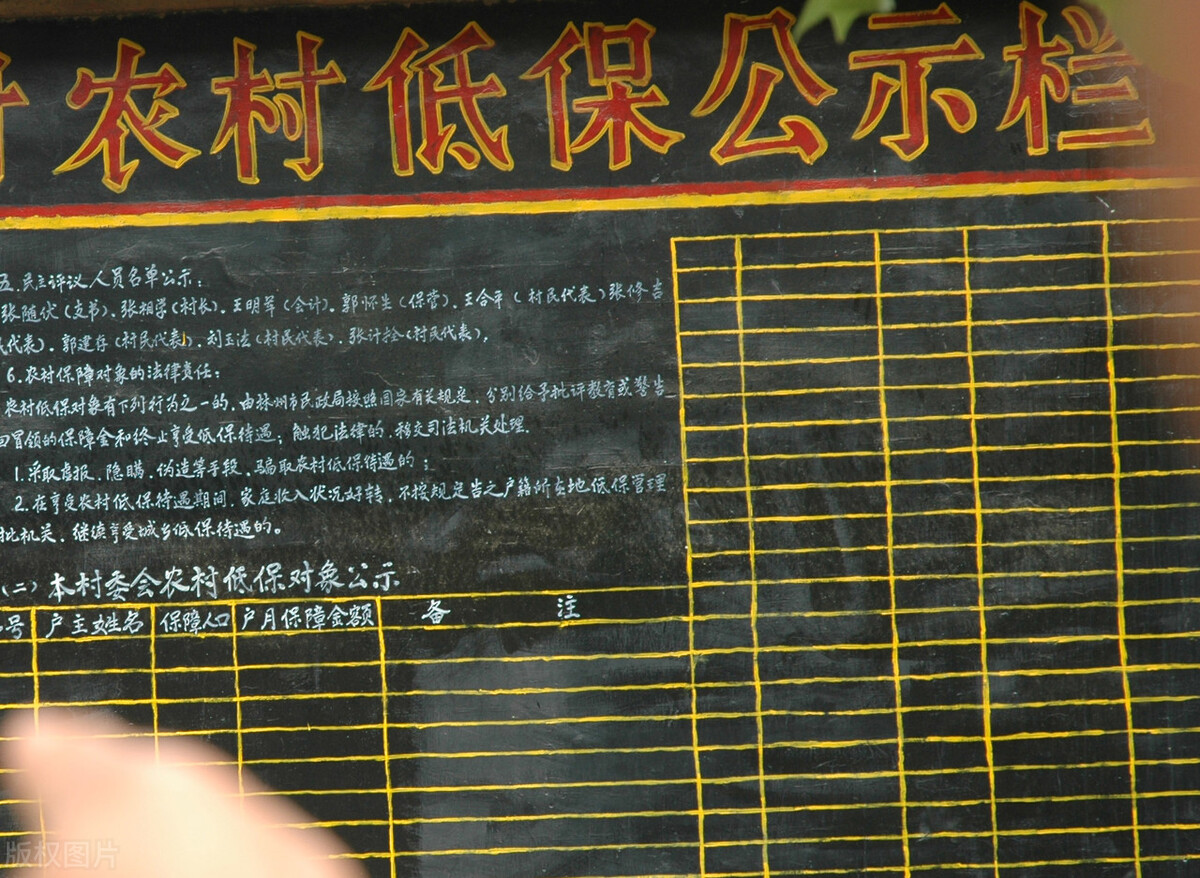 村农村低保公示栏
五.民主评议人员名单公示:
张随伏(支书)、张相学(村长)、王明军(会计)、郭怀生(保管)、王合平(村民代表)张修吉
民代表)、郭建存(村民代表)、刘玉法(村民代表)、张计拴(村民代表),
6.农村保障对象的法律责任:
农村低保对象有下列行为之一的,由林州市民政局按照国家有关规定,分别给予批评教育或警告
回冒领的保障金和终止享受低保待遇;触犯法律的,移交司法机关处理.
1.采取虚报、隐瞒、伪造等手段、骗取农村低保待遇的;
2.在享受农村低保待遇期间、家庭收入状况好转、不按规定告之户籍所在地低保管理
批机关、继续享受城乡低保待遇的。
(二)本村委会农村低保对象公示
号 户主姓名 保障人口 户月保障金额 备 注
版权图片